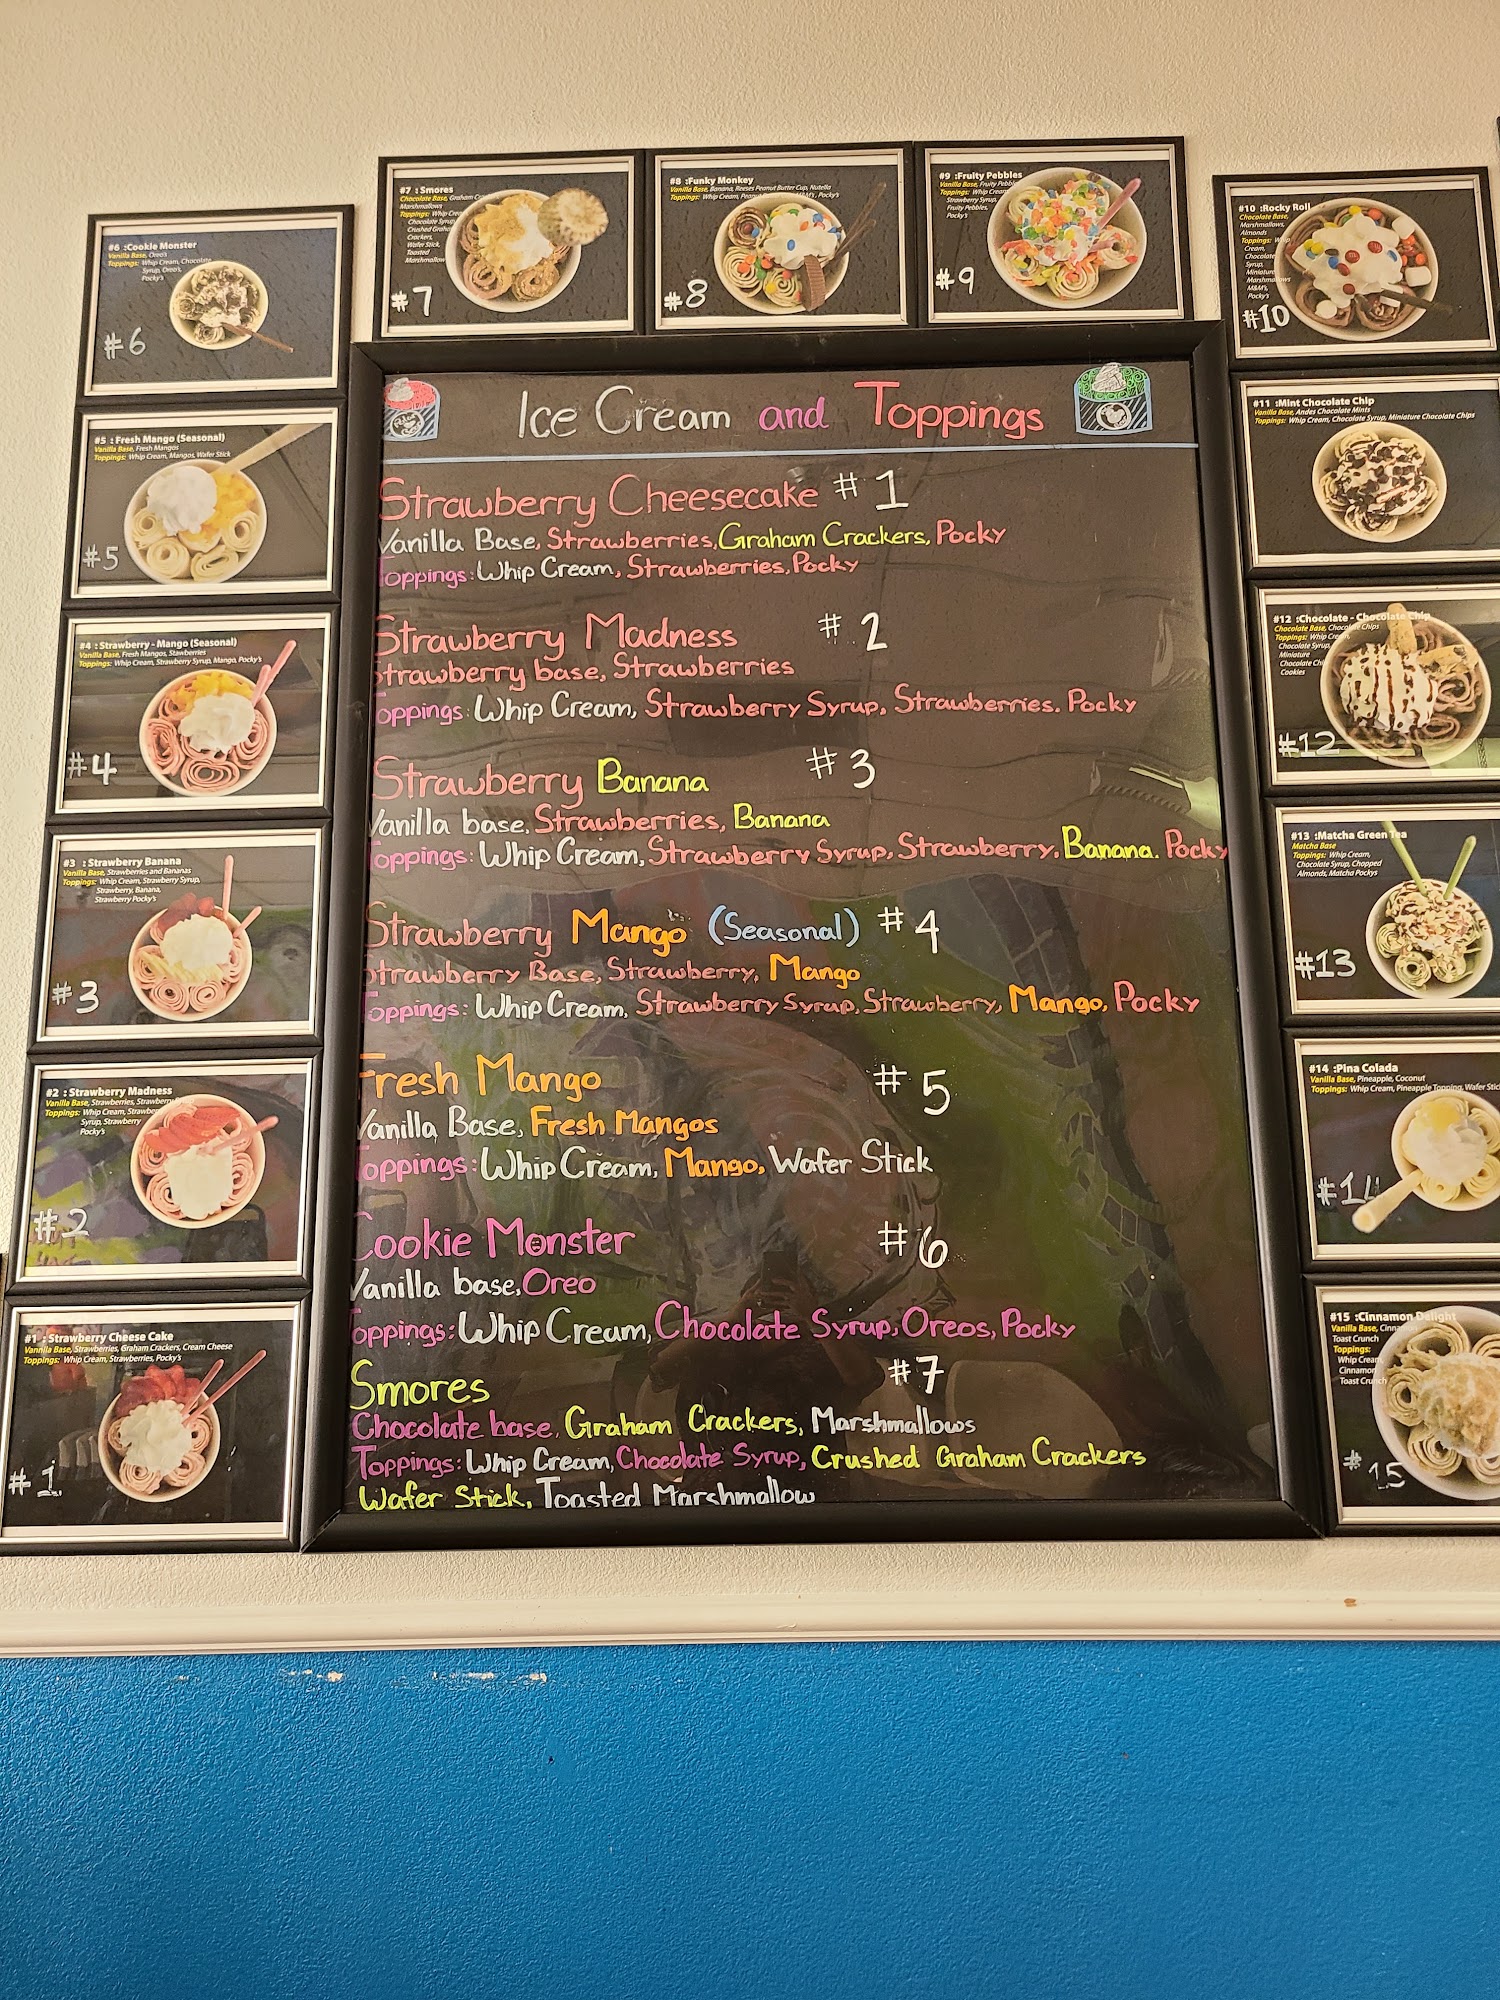 Ice Cream and Toppings
Strawberry Cheesecake #1
Vanilla Base, Strawberries, Graham Crackers, Pocky
Toppings: Whip Cream, Strawberries, Pocky
Strawberry Madness #2
Strawberry base, Strawberries
Toppings: Whip Cream, Strawberry Syrup, Strawberries. Pocky
Strawberry Banana #3
Vanilla base, Strawberries, Banana
Toppings: Whip Cream, Strawberry Syrup, Strawberry, Banana. Pocky
Strawberry Mango (Seasonal) #4
Strawberry Base, Strawberry, Mango
Toppings: Whip Cream, Strawberry Syrup, Strawberry, Mango, Pocky
Fresh Mango #5
Vanilla Base, Fresh Mangos
Toppings: Whip Cream, Mango, Wafer Stick
Cookie Monster #6
Vanilla base, Oreo
Toppings: Whip Cream, Chocolate Syrup, Oreos, Pocky
Smores #7
Chocolate base, Graham Crackers, Marshmallows
Toppings: Whip Cream, Chocolate Syrup, Crushed Graham Crackers
Wafer Stick, Toasted Marshmallow
#1 : Strawberry Cheese Cake
Vanilla Base, Strawberries, Graham Crackers, Cream Cheese
Toppings: Whip Cream, Strawberries, Pocky's
#1
#2 : Strawberry Madness
Vanilla Base, Strawberries, Strawberry
Toppings: Whip Cream, Strawberry
Syrup, Strawberry
Pocky's
#2
#3 : Strawberry Banana
Vanilla Base, Strawberries and Bananas
Toppings: Whip Cream, Strawberry Syrup,
Strawberry, Banana,
Strawberry Pocky's
#3
#4 : Strawberry - Mango (Seasonal)
Vanilla Base, Fresh Mangos, Stawberries
Toppings: Whip Cream, Strawberry Syrup, Mango, Pocky's
#4
#5 : Fresh Mango (Seasonal)
Vanilla Base, Fresh Mangos
Toppings: Whip Cream, Mangos, Wafer Stick
#5
#6 :Cookie Monster
Vanilla Base, Oreo's
Toppings: Whip Cream, Chocolate
Syrup, Oreo's,
Pocky's
#6
#7 : Smores
Chocolate Base, Graham
Marshmallows
Toppings: Whip
Chocolate Syrup,
Crushed Graham
Crackers,
Wafer Stick,
Toasted
Marshmallow
#7
#8 : Funky Monkey
Vanilla Base, Banana, Reeses Peanut Butter Cup, Nutella
Toppings: Whip Cream, M&M's, Pocky's
#8
#9 :Fruity Pebbles
Vanilla Base, Fruity Pebbles
Toppings: Whip Cream,
Strawberry Syrup,
Fruity Pebbles,
Pocky's
#9
#10 :Rocky Roll
Chocolate Base,
Marshmallows,
Almonds
Toppings: Whip
Cream,
Chocolate
Syrup,
Miniature
Marshmallows
M&M's,
Pocky's
#10
#11 :Mint Chocolate Chip
Vanilla Base, Andes Chocolate Mints
Toppings: Whip Cream, Chocolate Syrup, Miniature Chocolate Chips
#12 :Chocolate - Chocolate Chip
Chocolate Base, Chocolate Chips
Toppings: Whip Cream,
Chocolate Syrup,
Miniature
Chocolate Chip
Cookies
#12
#13 :Matcha Green Tea
Matcha Base
Toppings: Whip Cream,
Chocolate Syrup, Chopped
Almonds, Matcha Pockys
#13
#14 :Pina Colada
Vanilla Base, Pineapple, Coconut
Toppings: Whip Cream, Pineapple Topping, Wafer Stick
#14
#15 :Cinnamon Delight
Vanilla Base, Cinnamon
Toast Crunch
Toppings:
Whip Cream,
Cinnamon
Toast Crunch
#15